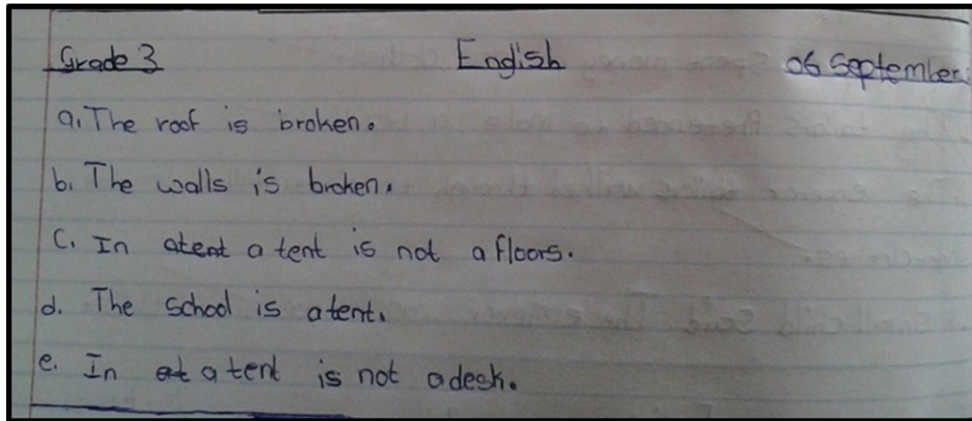 Grade 3 English 06 September
a. The roof is broken.
b. The walls is broken.
c. In atent a tent is not a floors.
d. The school is atent.
e. In at a tent is not a desk.